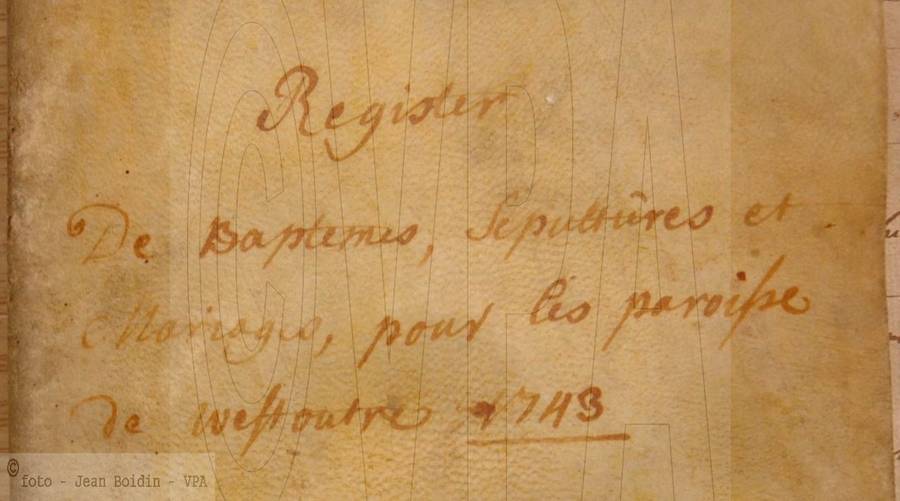 Register
De Baptemes, Sepultûres et
Mariages, pour les paroisse
de westoutre 1743
© foto - Jean Boidin - VPA